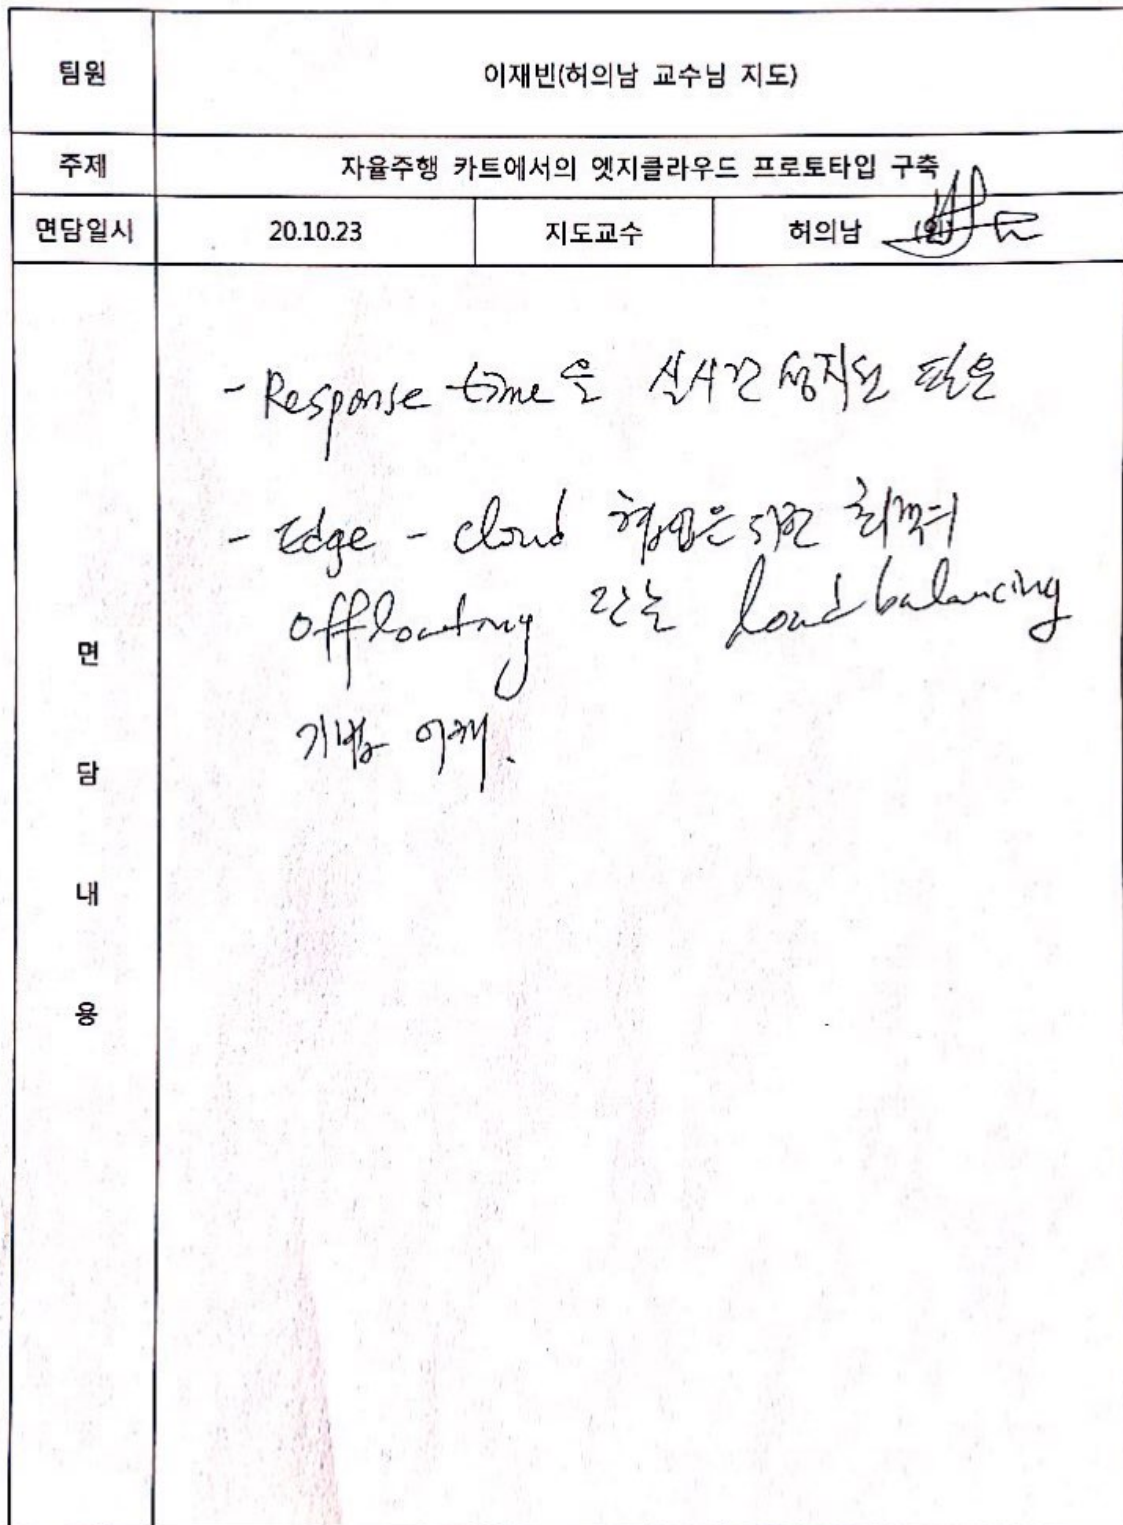 팀원 이재빈(허의남 교수님 지도)
주제 자율주행 카트에서의 엣지클라우드 프로토타입 구축
면담일시 20.10.23 지도교수 허의남 (인)
면담내용
- Response time을 실시간 필요
- Edge - cloud 협업을 위한 최적의
offloading 또는 load balancing
기법 이해.